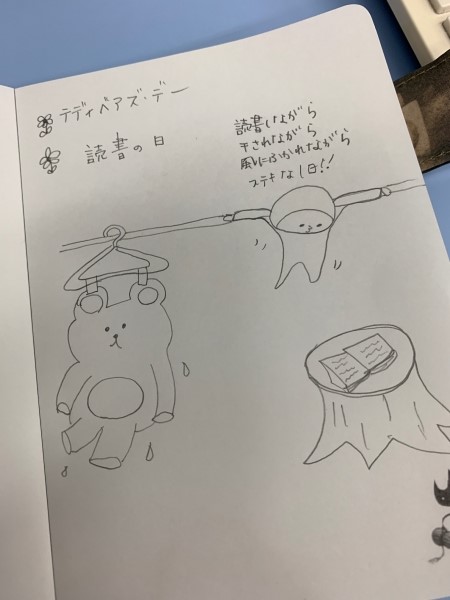 テディベアズ・デー
読書の日
読書しながら
干されながら
風にふかれながら
ステキな1日!!